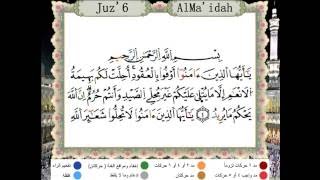 Juz' 6 AlMa'idah
بِسْمِ ٱللَّهِ ٱلرَّحْمَٰنِ ٱلرَّحِيمِ
يَٰٓأَيُّهَا ٱلَّذِينَ ءَامَنُوٓا۟ أَوْفُوا۟ بِٱلْعُقُودِ أُحِلَّتْ لَكُم بَهِيمَةُ
ٱلْأَنْعَٰمِ إِلَّا مَا يُتْلَىٰ عَلَيْكُمْ غَيْرَ مُحِلِّى ٱلصَّيْدِ وَأَنتُمْ حُرُمٌ إِنَّ ٱللَّهَ
يَحْكُمُ مَا يُرِيدُ ١ يَٰٓأَيُّهَا ٱلَّذِينَ ءَامَنُوا۟ لَا تُحِلُّوا۟ شَعَٰٓئِرَ ٱللَّهِ